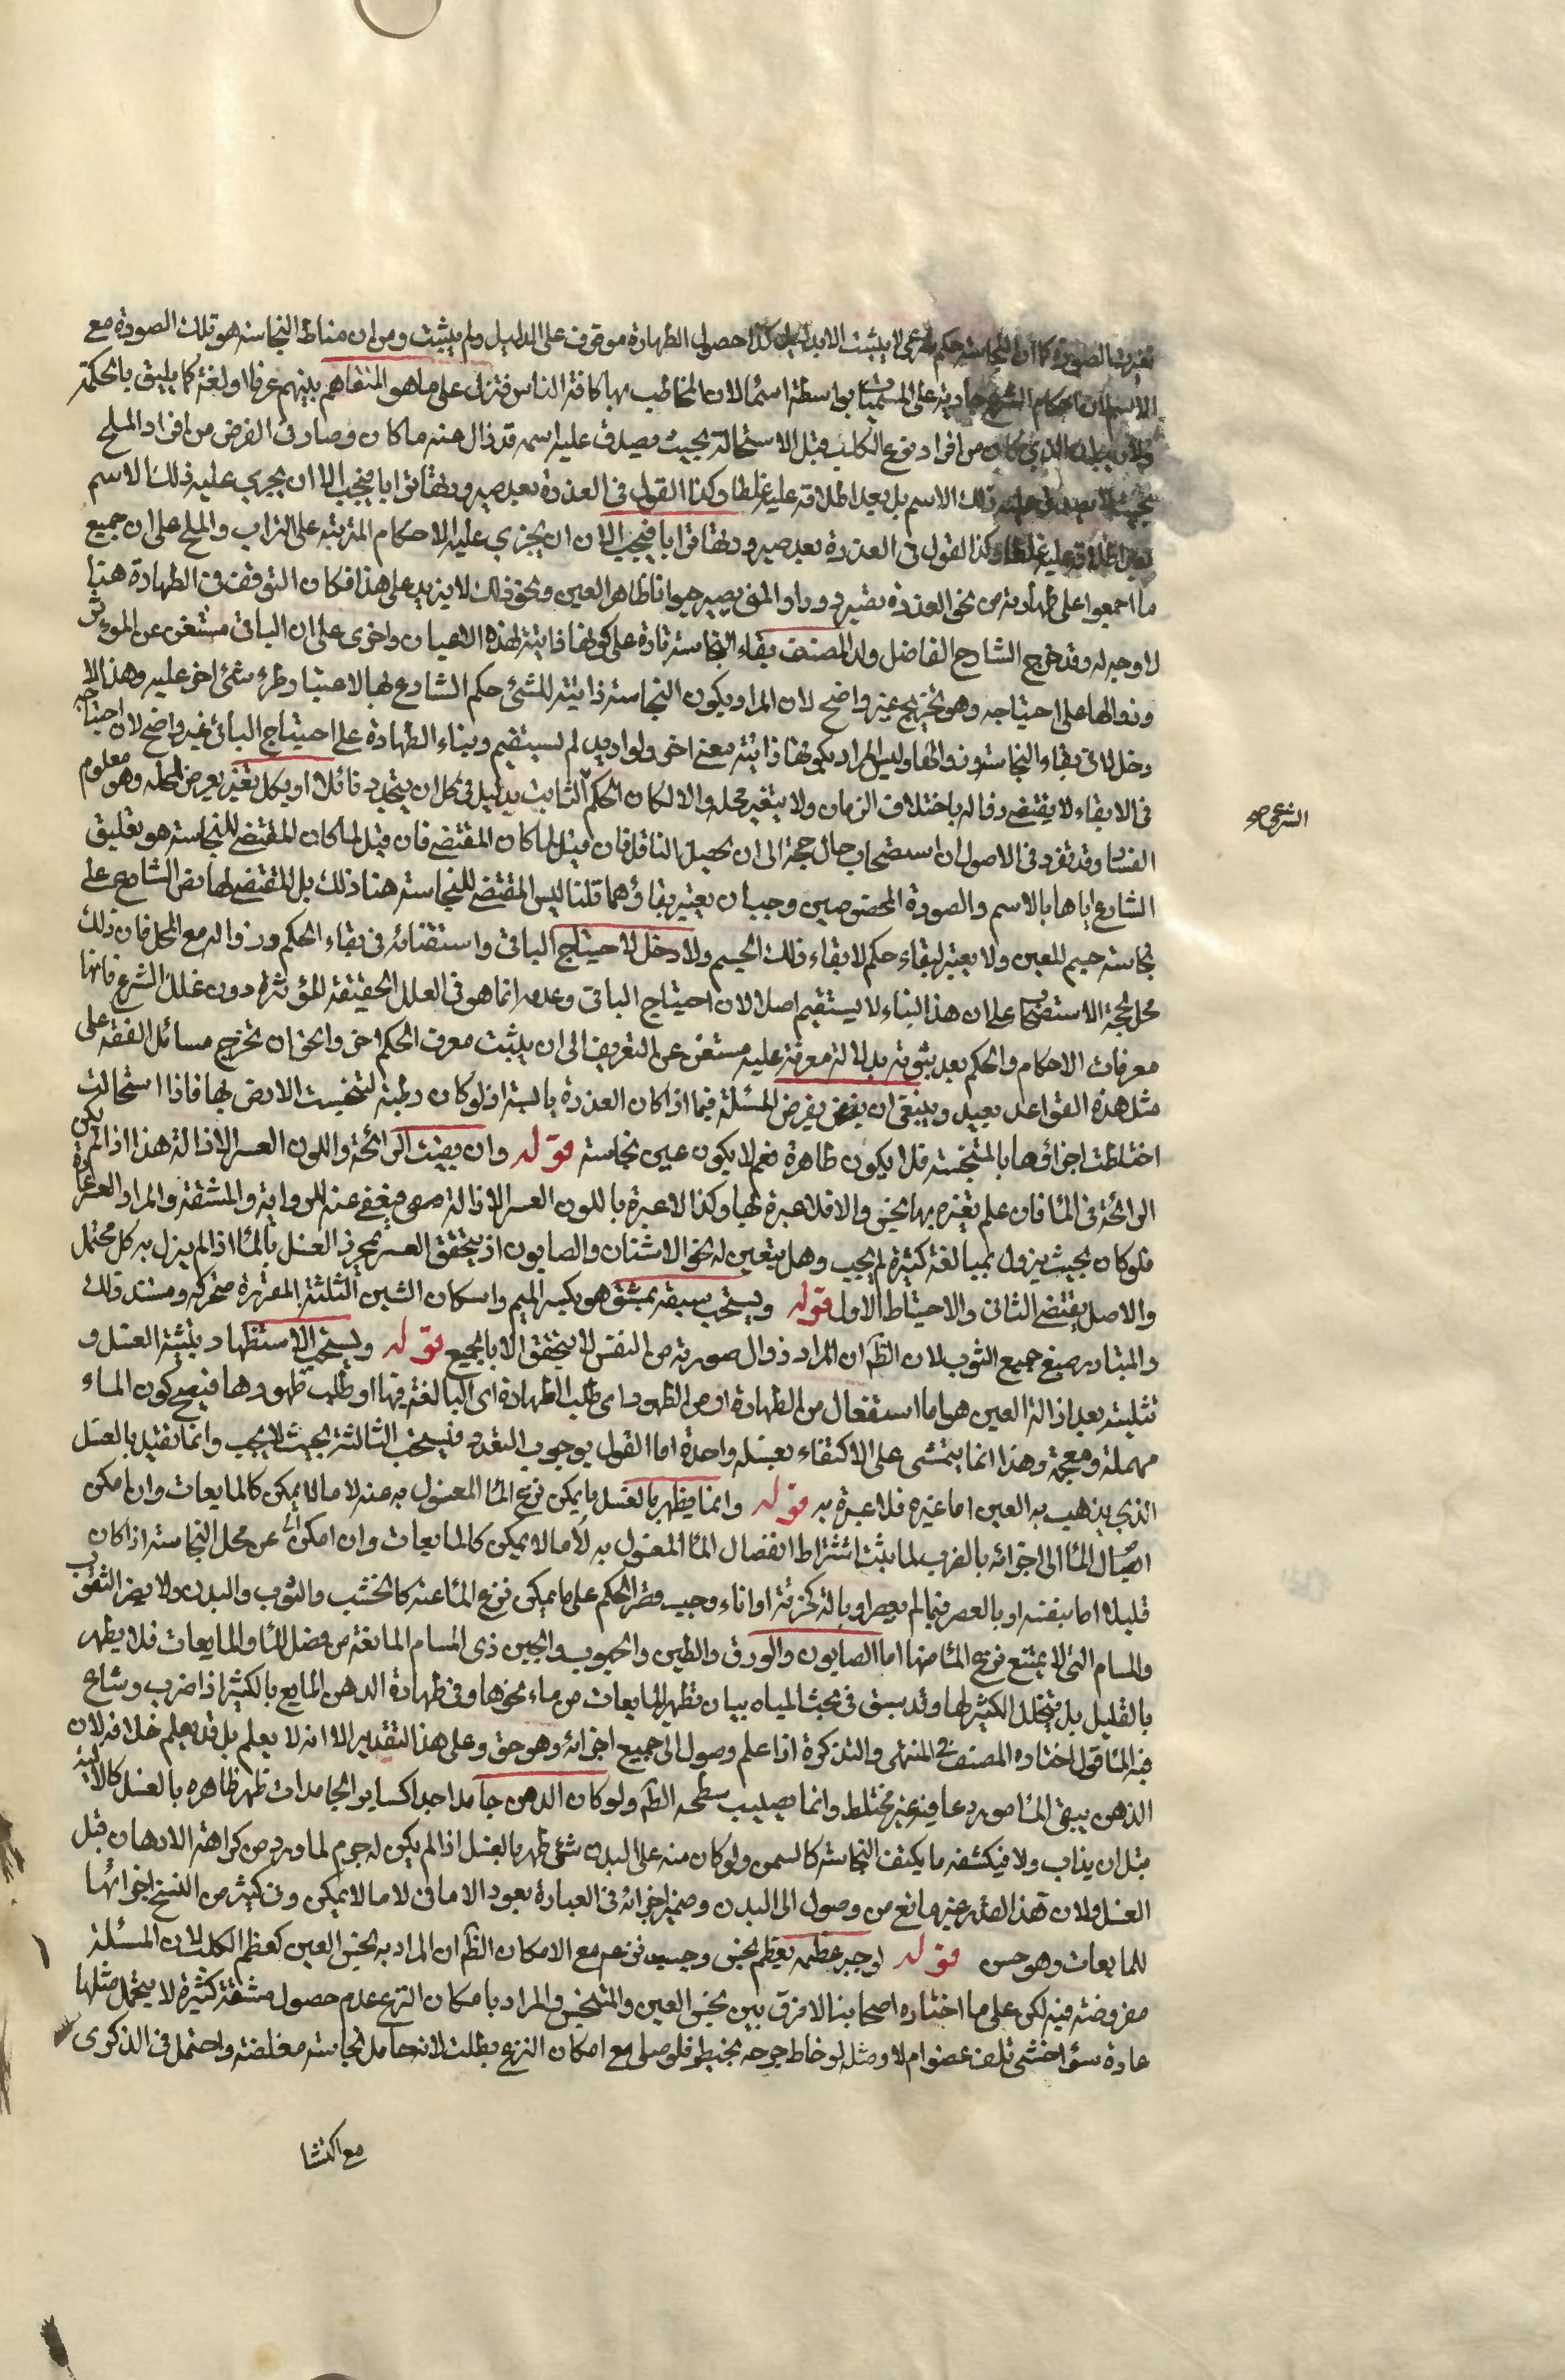 تغيرت الصورة كما ان النجاسة حكم شرعى لا يثبت الا بدليل كذا حصول الطهارة موقوف على الدليل ولم يثبت ومن ان مناط النجاسة هو تلك الصورة مع
الاسم لان احكام الشرع جارية على المسميات بواسطة اسمائها لان المخاطب بها كافة الناس فتنزل على ما هو المتفاهم بينهم عرفا او لغة كما يليق بالحكمة
ولان الذي كان من افراد نوع الكلب قبل الاستحالة بحيث يصدق عليه اسمه قد زال عنه ما كان وصار فى الفرض من افراد الملح
بحيث لا يصدق عليه ذلك الاسم بل يعد اطلاقه عليه غلطا وكذا القول فى العذرة بعد صيرورتها ترابا فيجب الا ان يجري عليه ذلك الاسم
يعد اطلاقه عليه غلطا وكذا القول فى العذرة بعد صيرورتها ترابا فيجب الان ان يجري عليه الاحكام المترتبة على التراب والملح على ان جميع
ما اجمعوا على طهارته من نحو العذرة تصير دودا والمنى يصير حيوانا طاهر العين ونحو ذلك لا يزيد على هذا فكان التوقف فى الطهارة هنا
لا وجه له وقد خرج الشارح الفاضل ولد المصنف بقاء النجاسة تارة على كونها ذاتية لهذه الاعيان واخرى على ان الباقى مستغن عن المؤثر
وزوالها على احتياجه وهو تخريج غير واضح لان المراد بكون النجاسة ذاتية للشئ حكم الشارع بها لا عتبار طرء شئ اخر عليه وهذا لا
دخل له فى بقاء النجاسة وزوالها وليس المراد بكونها ذاتية معنى اخر ولو اريد لم يستقم وبناء الطهارة على احتياج الباقى غير واضح لان احتياجه
فى البقاء لا يقتضى زواله باختلاف الزمان ولا بتغير محله والا لكان الحكم الثابت بدليل فى كل ان يتجدد قائلا او بكل تغير يعرض لمحله وهو معلوم
الشرعى صح
الفساد وقد تقرر فى الاصول ان استصحاب حال حجة الى ان يحصل الناقل فان قيل لما كان المقتضى فان قيل لما كان المقتضى للنجاسة هو تعليق
الشارع اياها بالاسم والصورة المخصوصين وجب ان يعتبر بقاؤهما قلنا ليس المقتضى للنجاسة هنا ذلك بل المقتضى لها نص الشارع على
نجاسة جسم للعين ولا يعتبر لبقاء حكم لا بقاء ذلك الجسم ولا دخل لاحتياج الباقى واستغنائه فى بقاء الحكم وزواله مع المحل فان ذلك
محل حجة الاستصحاب على ان هذا البناء لا يستقيم اصلا لان احتياج الباقى وعدمه انما هو فى العلل الحقيقة المؤثرة دون علل الشرع فانها
معرفات الاحكام والحكم بعد ثبوته بدلالة معرفة عليه مستغن عن التعريف الى ان يثبت معرف الحكم اخر والحق ان تخريج مسائل الفقه على
مثل هذه القواعد بعيد وينبغى ان يفرض المسئلة فيما اذا كان العذرة يابسة اذ لو كان رطبة لتنجست الارض بها فاذا استحالت
اختلطت اجزاؤها بالمتنجسة فلا يكون طاهرة نعم لا يكون عين نجاسة قوله وان بقيت الرائحة واللون العسر الازالة هذا اذا لم يكن
الرائحة فى الماء فان علم تغيره بها نجس والا فلا عبرة لها وكذا لا عبرة باللون العسر الازالة فيعفى عنه للرواية والمشقة والمراد العسر عادة
فلو كان بحيث يزول بمبالغة كثيرة لم يجب وهل يتعين له نحو الاشنان والصابون اذ يتحقق العسر بمجرد الغسل بالماء اذا لم يزل به كل محتمل
والاصل يقتضى الثانى والاحتياط الاول قوله ويستحب صبغه بمشق هو بكسر الميم واسكان الشين المثلثة المغرة متحركه ومستند ذلك
والمتبادر صبغ جميع الثوب لان الظ ان المراد زوال صورته من النفس لا يتحقق الا بالجميع قوله ويستحب الاستظهار بتثنية الغسل و
تثليثه بعد ازالة العين هو اما استفعال من الطهارة او من الظهور اى طلب الطهارة اى المبالغة فيها او طلب ظهورها فيصح كون الماء
مهملة ومعجمة وهذا انما يتمشى على الاكتفاء بغسلة واحدة اما القول بوجوب التعدد فيستحب الثالثة بحيث لا يجب وانما تقيد بالغسل
الذي يذهب به العين اما غيره فلا عبرة به قوله وانما يطهر بالغسل ما يمكن نزع الماء المغسول به عنه لا ما لا يمكن كالمايعات وان امكن
ايصال الماء الى اجزائه بالضرب لما يثبت اشتراط انفصال الماء المغسول به لا ما لا يمكن كالمايعات وان امكن عن محل النجاسة اذا كان
قليلا اما بنفسه او بالعصر فيما لم يعصر او بالة كخرقة او اناء وجب قصر الحكم على ما يمكن نزع الماء عنه كالخشب والثوب والبدن ولا يضر الثقوب
والمسام التى لا يمتنع نزع الماء منها اما الصابون والورق والطين والحبوب والجبن ذى المسام المانعة من فصل الماء والمايعات فلا يطهر
بالقليل بل يتخلل الكثير لها وقد سبق فى بحث المياه بيان تطهير المايعات من ماء نحوها وفى طهارة الدهن المايع بالكثير اذا ضرب وشاع
فيه الماء قول اختاره المصنف فى المنتهى والتذكرة اذا علم وصول الى جميع اجزائه وهو حق وعلى هذا التقدير الا انه لا يعلم بل قد يعلم خلافه لان
الدهن يبقى الماء مودعا فيه غير مختلط وانما يصيب سطحه الظ ولو كان الدهن جامدا جدا كساير الجامدات طهر ظاهره بالغسل كالالية
قبل ان يذاب ولا فيكشفه ما يكنف النجاسة كالسمن ولو كان منه على البدن شئ طهر بالغسل اذا لم يكن له جرم لما ورد من كراهة الادهان قبل
الغسل ولان هذا القدر غير مانع من وصول الى البدن وضمير اجزائه فى العبارة يعود الا ما فى لا ما لا يمكن وفى كثير من النسخ اجزائها
للمايعات وهو حسن قوله لو جبر عظمه بعظم نجس وجب نزعه مع الامكان الظ ان المراد به نجس العين كعظم الكلب لان المسئلة
مفروضة فيه لكن على ما اختاره اصحابنا لا فرق بين نجس العين والمتنجس والمراد بامكان النزع عدم حصول مشقة كثيرة لا يتحمل مثلها
عادة سواء خشى تلف عضو ام لا ومثله لو خاط جرحه بخيط فلو صلى مع امكان النزع بطلت لانه حامل نجاسة مغلظة واحتمل فى الذكرى
مع اكتسا